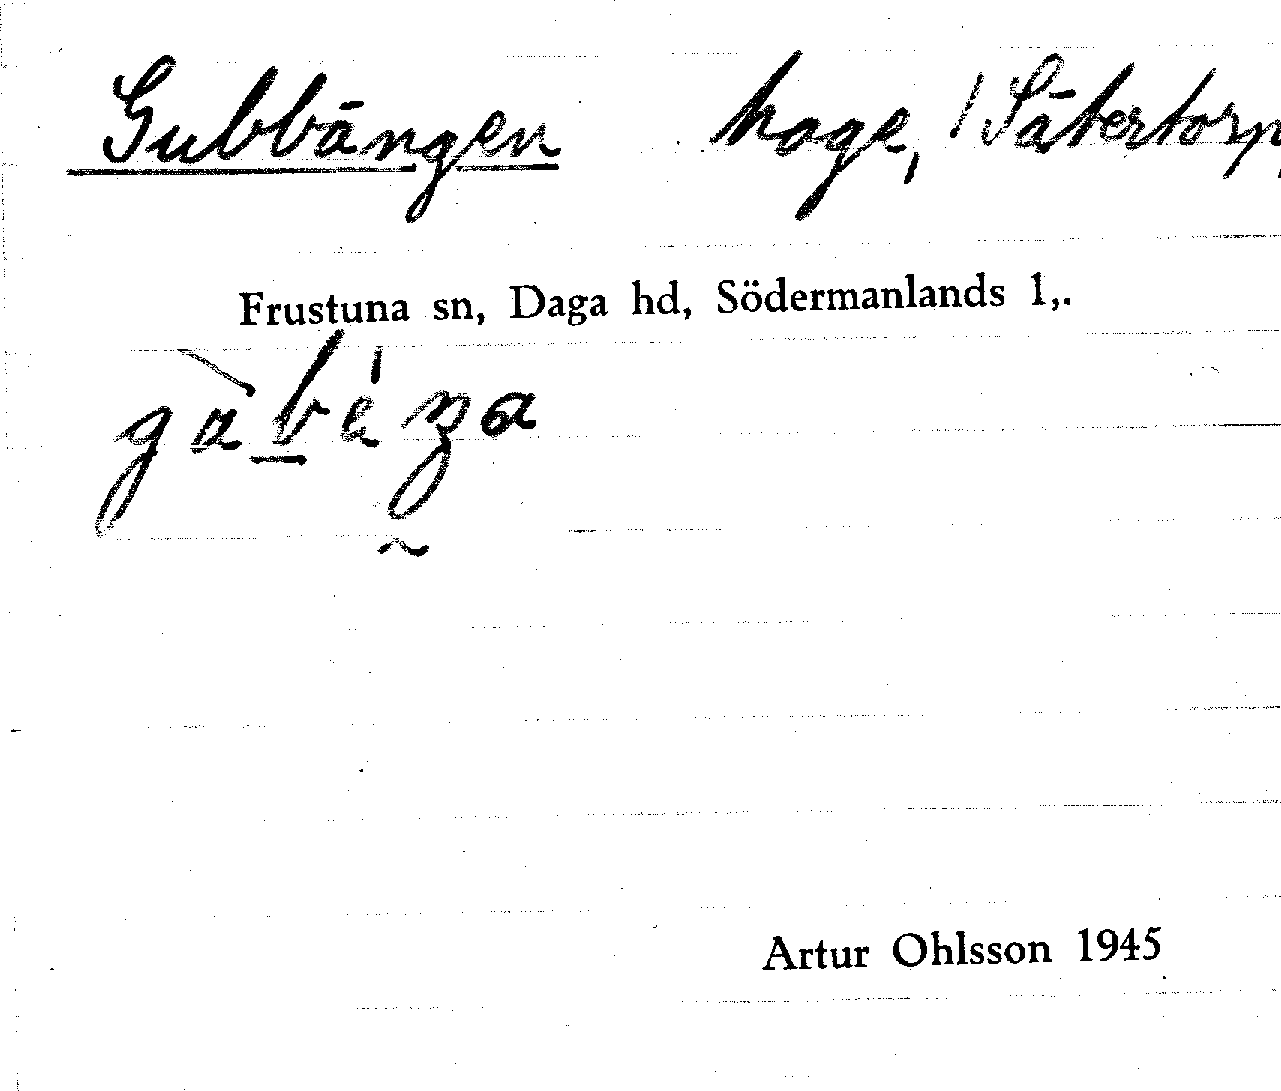 Gubbängen hage, /Sätertorp,
Frustuna sn, Daga hd, Södermanlands l,.
Artur Ohlsson 1945